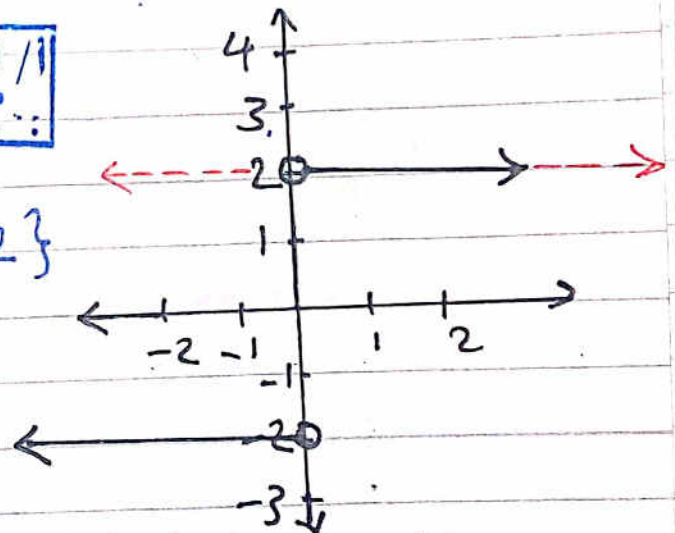 4
3
2
2}
1
-2 -1 1 2
-1
-2
-3